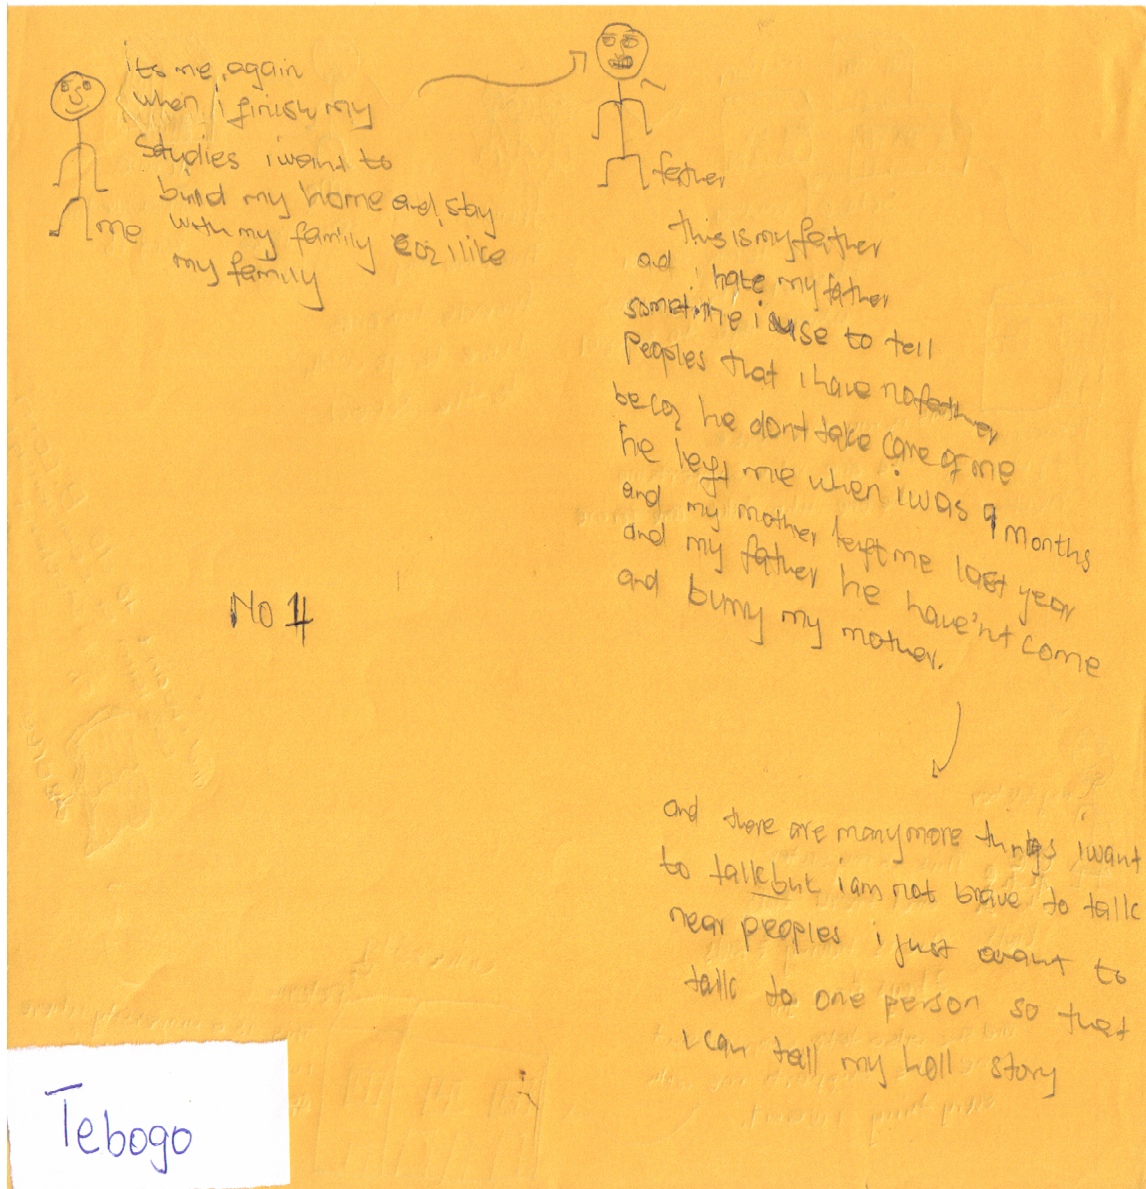 its me again
when i finish my
Studies i want to
build my home and stay
with my family coz i like
my family
me
father
this is my father
and i hate my father
sometime i use to tell
Peoples that i have no father
becoz he dont take care of me
he left me when i was 9 months
and my mother left me last year
and my father he have'nt come
and burry my mother.
No 4
and there are many more things i want
to talk but i am not brave to talk
near peoples i just want to
talk to one person so that
i can tell my holl story
Tebogo